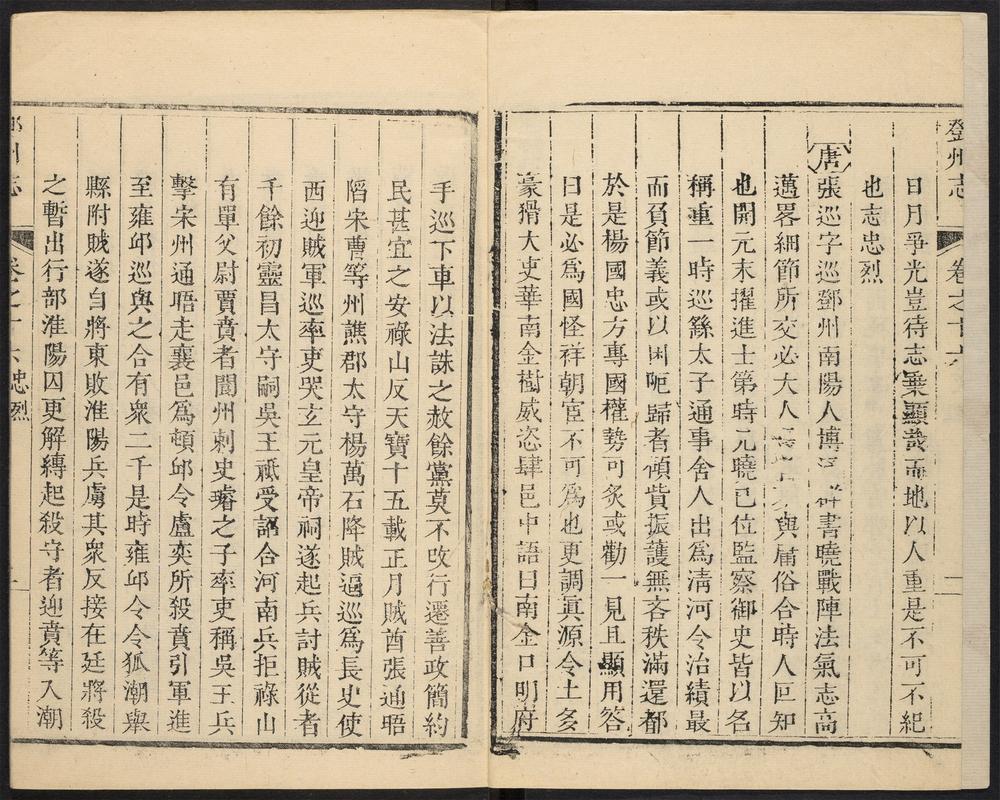 鄧州志 卷之十六
日月爭光豈待志乗顯哉而地以人重是不可不紀
也志忠烈
唐張巡字巡鄧州南陽人博 羣書曉戰陣法氣志高
邁畧細節所交必大人 與庸俗合時人叵知
也開元末擢進士第時兄曉已位監察御史皆以名
稱重一時巡繇太子通事舍人出爲淸河令治績最
而負節義或以困阨歸者傾貲振護無吝秩滿還都
於是楊國忠方專國權勢可炙或勸一見且顯用答
曰是必爲國怪祥朝宦不可爲也更調眞源令土多
豪猾大吏華南金樹威恣肆邑中語曰南金口明府
手巡下車以法誅之赦餘黨莫不改行遷善政簡約
民甚宜之安祿山反天寶十五載正月賊酋張通晤
陷宋曹等州譙郡太守楊萬石降賊逼巡爲長史使
西迎賊軍巡率吏哭玄元皇帝祠遂起兵討賊從者
千餘初靈昌太守嗣吳王祗受詔合河南兵拒祿山
有單父尉賈賁者閬州刺史璿之子率吏稱吳王兵
擊宋州通晤走襄邑爲頓邱令盧奕所殺賁引軍進
至雍邱巡與之合有衆二千是時雍邱令令狐潮舉
縣附賊遂自將東敗淮陽兵虜其衆反接在廷將殺
之暫出行部淮陽囚更解縛起殺守者迎賁等入潮
州志 卷之十六 忠烈 一